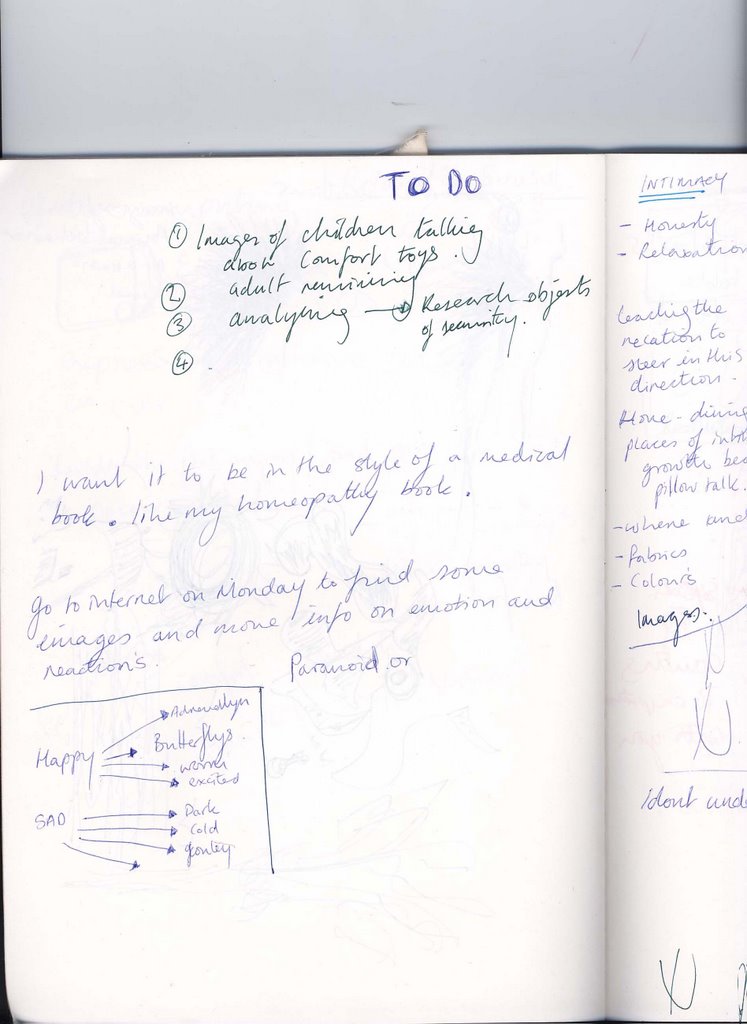 TO DO
① Images of children talking
about Comfort toys.
② adult
③ analysing → Research objects
of security.
④ .
I want it to be in the style of a medical
book. like my homeopathy book.
Go to internet on Monday to find some
images and more info on emotion and
reaction's.
Paranoid or
Happy
Butterflys.
warm
excited
SAD
Dark
Cold
INTIMACY
- Honesty
- Relaxation
leading the
relation to
steer in this
direction -
Home - dining
places of
growth
pillow talk.
- where and
- fabrics
- Colours
Images.
I dont